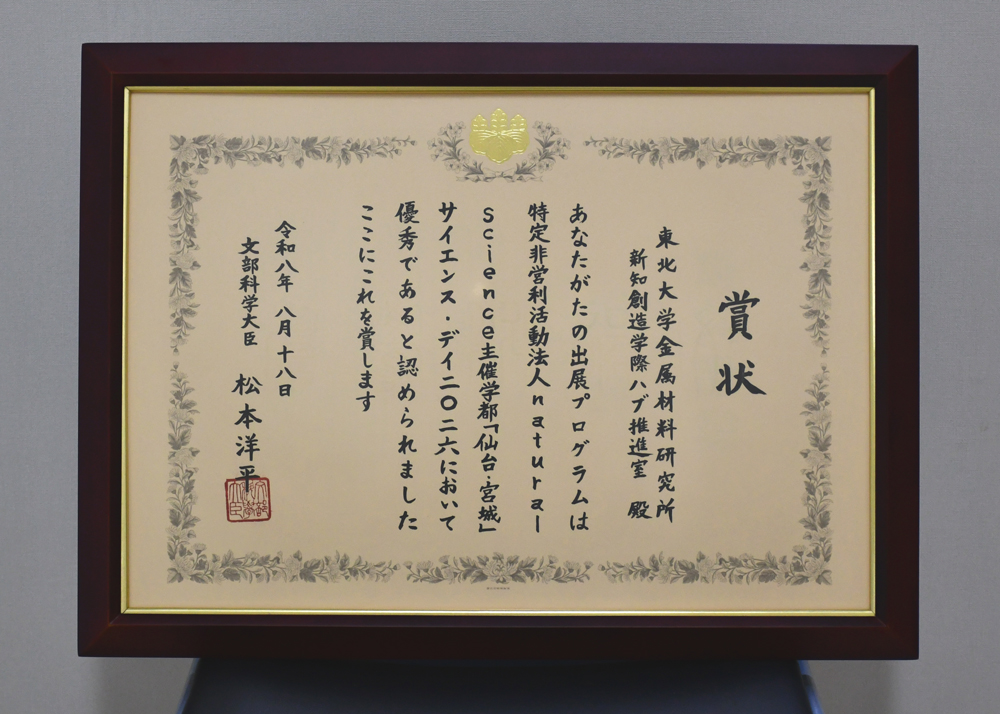 賞状
東北大学金属材料研究所
新知創造学際ハブ推進室 殿
あなたがたの出展プログラムは
特定非営利活動法人natural
science主催学都「仙台・宮城」
サイエンス・デイ二〇二六において
優秀であると認められました
ここにこれを賞します
令和八年 八月十八日
文部科学大臣 松本洋平